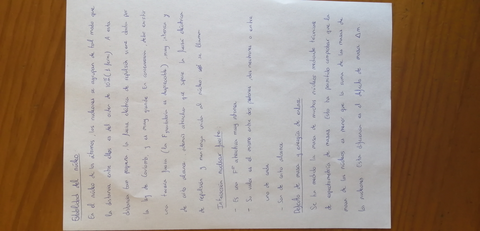 Estabilidad del núcleo
En el núcleo de los átomos, los nucleones se agrupan de tal modo que
la distancia entre ellos es del orden de 10⁻¹⁵ (1 fermi). A esta
distancia tan pequeña la fuerza eléctrica de repulsión viene dada por
la ley de Coulomb, y es muy grande. En consecuencia debe existir
una tercera fuerza (la F. gravitatoria es despreciable) muy intensa y
de corto alcance además atractiva que supere la fuerza eléctrica
de repulsión y mantenga unido el núcleo
Interacción nuclear fuerte
- Es una Fª atractiva muy intensa.
- Su valor es el mismo entre dos protones, dos neutrones o entre
uno de cada.
- Son de corto alcance.
Defecto de masa y energía de enlace
Se ha medido la masa de muchos núcleos mediante técnicas
de espectrometría de masas. Esto ha permitido comprobar que la
masa de los núcleos es menor que la suma de las masas de
los nucleones. Esta diferencia es el defecto de masa Δm